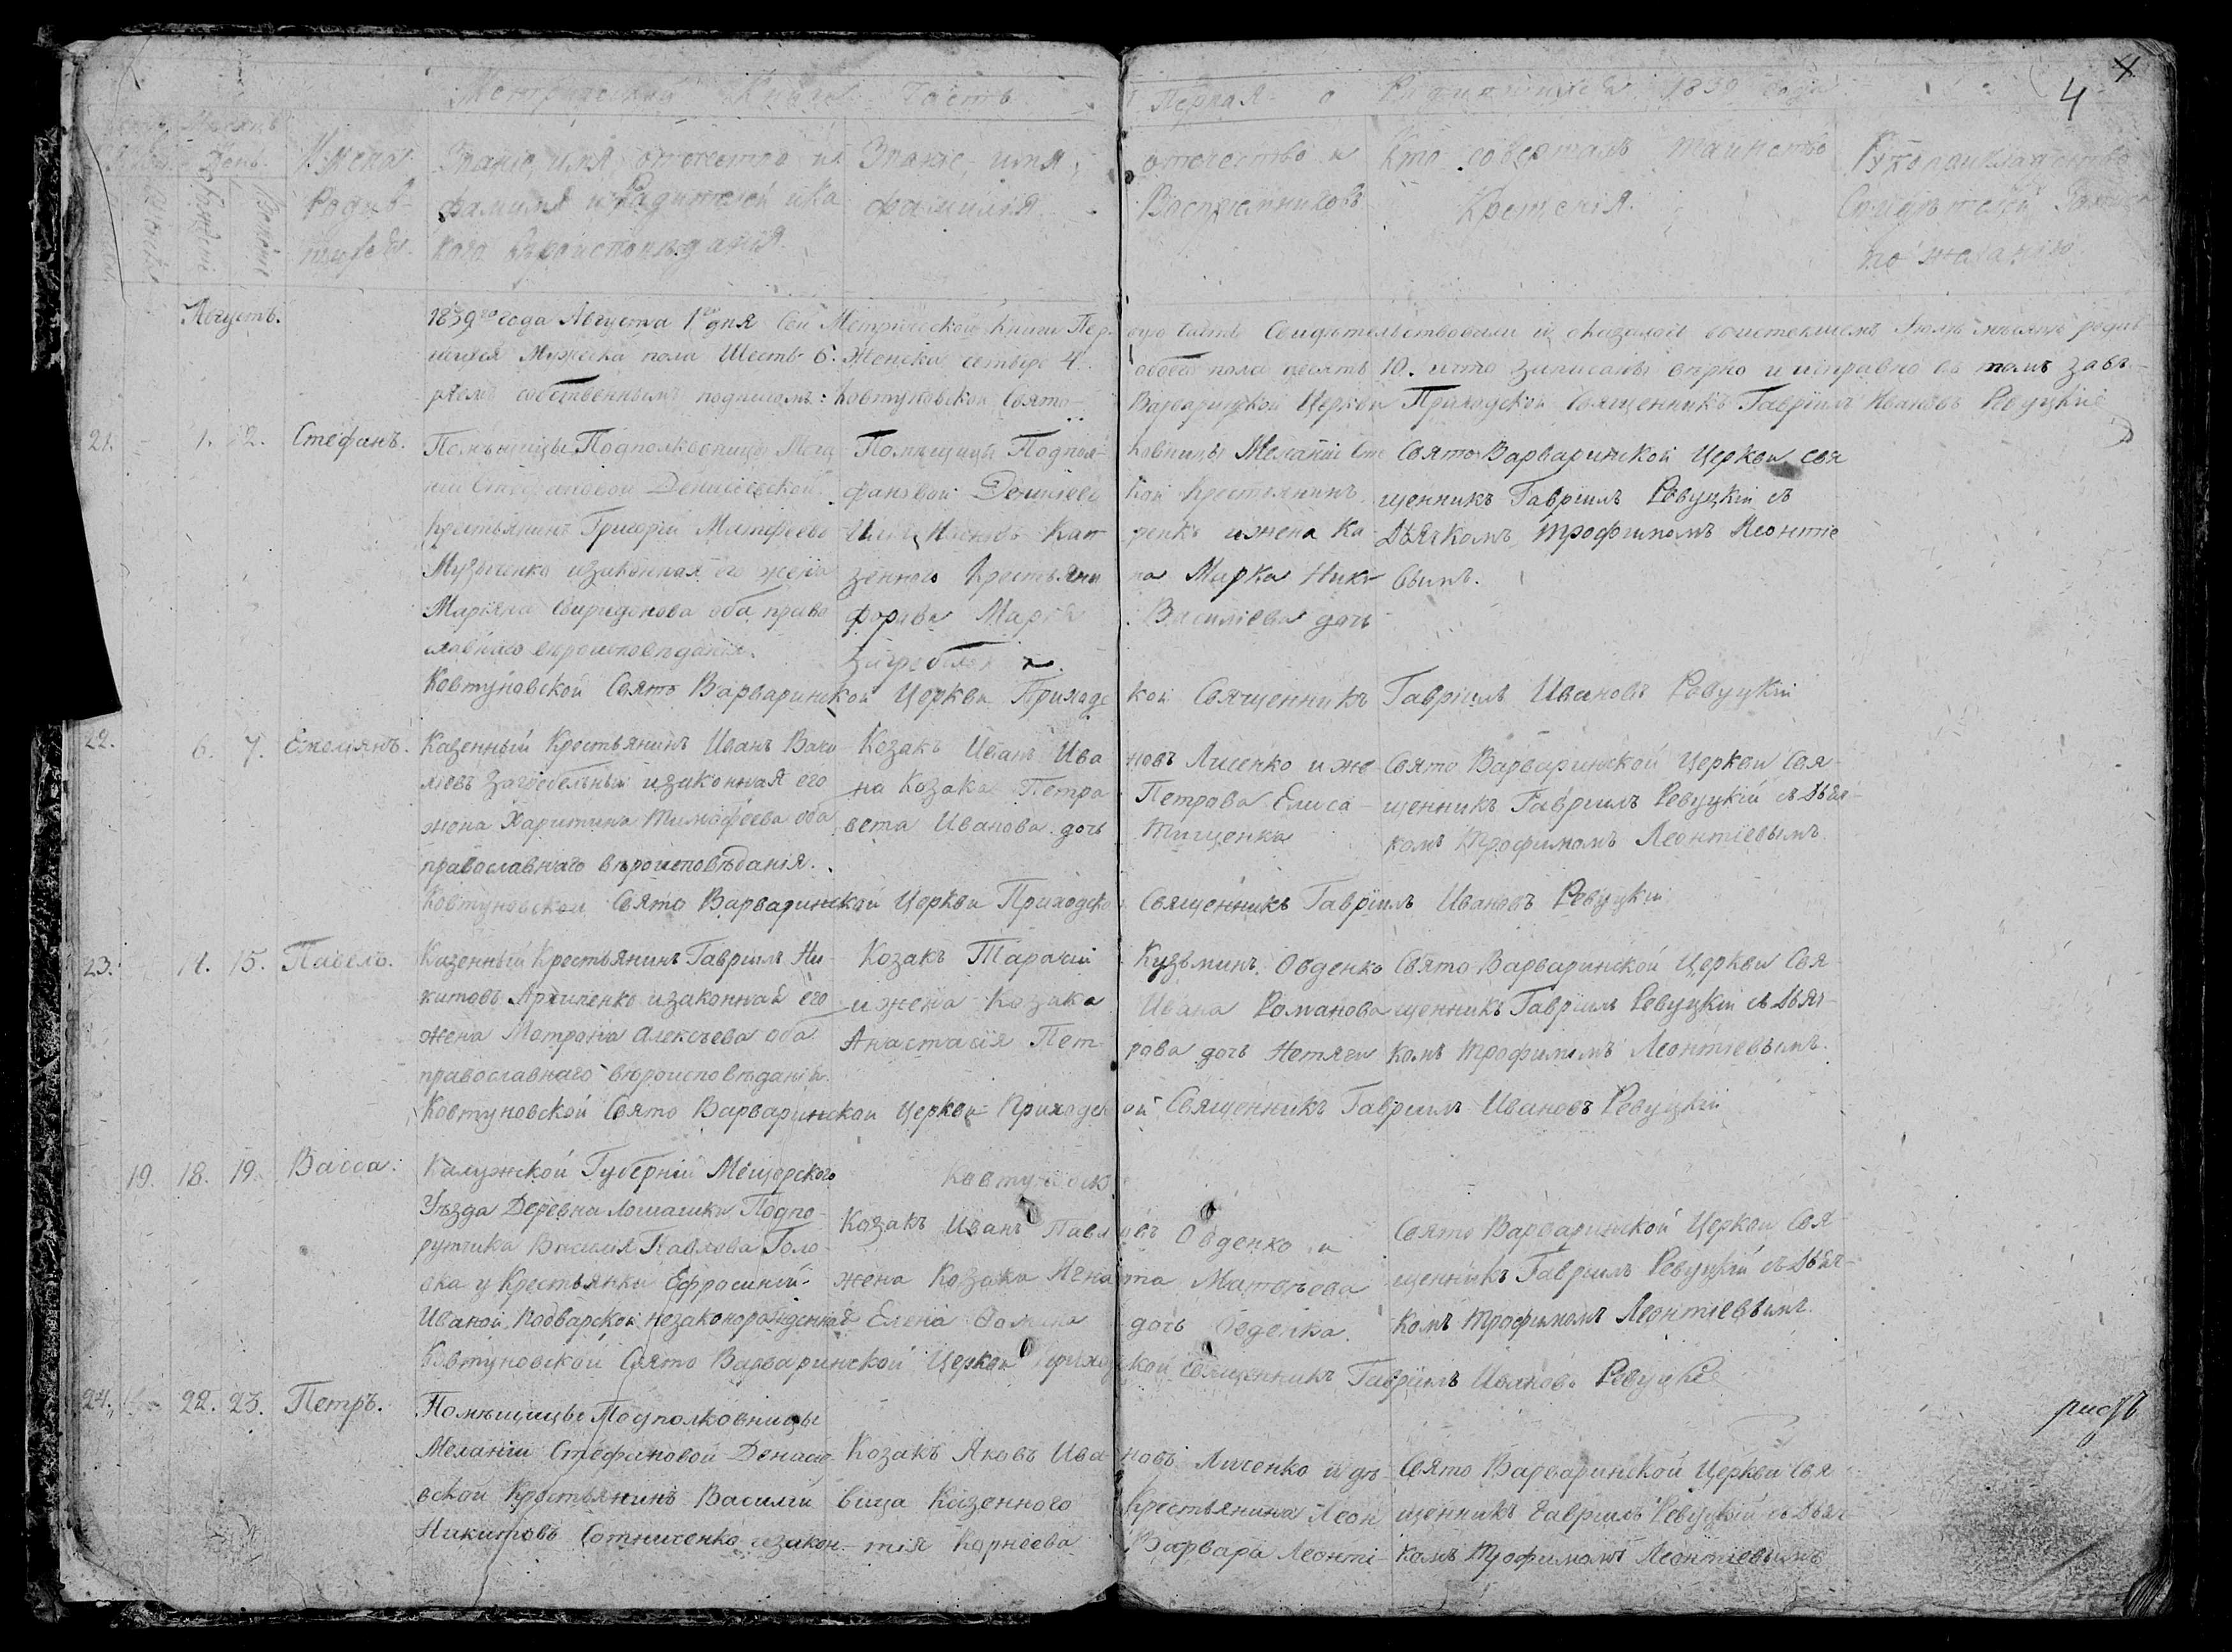 Метрической Книги Часть Первая о Родившихся 1839 года
4
Месяцъ
День.
Имена Родив-
шихся.
Званіе, имя, отчество и
фамилія Родителей и ка
кого вѣроисповѣданія.
Званіе, имя,
фамилія
отчество и
Воспріемниковъ
Кто совершалъ таинство
Крещенія.
Рукоприкладство
Свидѣтелей
по желанію
Августъ.
1839го года Августа 1го дня Сей Метрической Книги Пер-
вую часть Свидѣтельствовали и оказалось въ истекшемъ Іюлѣ мѣсяцѣ родив
шихся Мужеска пола Шесть 6. Женска четыре 4.
обоего пола десять 10. и что записаны вѣрно и исправно въ томъ завѣ-
ряемъ собственнымъ подписомъ: Ковтуновской Свято-
Варваринской Церкви Приходской Священникъ Гавріилъ Ивановъ Ревуцкій
21.
1. 2. Стефанъ.
Помѣщицы Подполковницы Мела
ніи Стефановой Денисевской
Крестьянинъ Григорій Матфеевъ
Музыченко и законная его жена
Маріяна Свиридонова оба право
славнаго вѣроисповѣданія.
Помѣщицы Подпол-
фановой Денисевс
зенного Крестьяни
форова Марія
ковницы Меланіи Сте
кой Крестьянинъ
ренко и жена Ка
на Марка Ники
Василіева дочь
Свято Варваринской Церкви Свя
щенникъ Гавріилъ Ревуцкій съ
Дьячкомъ Трофимомъ Леонтіе
вымъ.
Ковтуновской Свято Варваринской Церкви Приходс
кой Священникъ Гавріилъ Ивановъ Ревуцкій
22.
6. 7. Емеліянъ.
Казенный Крестьянинъ Иванъ Васи
ліевъ Загребельный и законная его
жена Харитина Тимофеева оба
православнаго вѣроисповѣданія.
Козакъ Иванъ Ива
на Козака Петра
вета Иванова дочь
новъ Лисенко и же
Петрова Елиса-
Тищенка
Свято Варваринской Церкви Свя-
щенникъ Гавріилъ Ревуцкій съ Дьяч-
комъ Трофимомъ Леонтіевымъ
Ковтуновской Свято Варваринской Церкви Приходско
Священникъ Гавріилъ Ивановъ Ревуцкій
23.
14. 15. Павелъ.
Казенный Крестьянинъ Гавріилъ Ни-
китовъ Архипенко и законная его
жена Матрона Алексѣева оба
православнаго вѣроисповѣданія.
Козакъ Тарасій
и жена Козака
Анастасія Пет
Кузьминъ Овденко
Ивана Романова
рова дочь Нетяги
Свято Варваринской Церкви Свя-
щенникъ Гавріилъ Ревуцкій съ Дьяч-
комъ Трофимомъ Леонтіевымъ.
Ковтуновской Свято Варваринской Церкви Приходск
ой Священникъ Гавріилъ Ивановъ Ревуцкій
19. 18. 19. Васса.
Калужской Губерніи Мещорского
Уѣзда Деревни Подпо-
рутчика Василія Павлова Голо-
вка у Крестьянки Ефросиніи
Ивановой незаконорожденная
Козакъ Иванъ Павл
жена Козака Игна
Елена
овъ Овденко и
та Матвѣева
дочь Овденка.
Свято Варваринской Церкви Свя-
щенникъ Гавріилъ Ревуцкій съ Дьяч-
комъ Трофимомъ Леонтіевымъ.
Ковтуновской Свято Варваринской Церкви Приходс
кой Священникъ Гавріилъ Ивановъ Ревуцкій
24.
22. 23. Петръ.
Помѣщицы Подполковницы
Меланіи Стефановой Денисе
вской Крестьянинъ Василій
Никитовъ Сотниченко и закон
Козакъ Яковъ Ива
вица Казенного
тія Корнѣева
новъ Лисенко и дѣ-
Крестьянина Леон
Варвара Леонті-
Свято Варваринской Церкви Свя
щенникъ Гавріилъ Ревуцкій съ Дьяч-
комъ Трофимомъ Леонтіевымъ